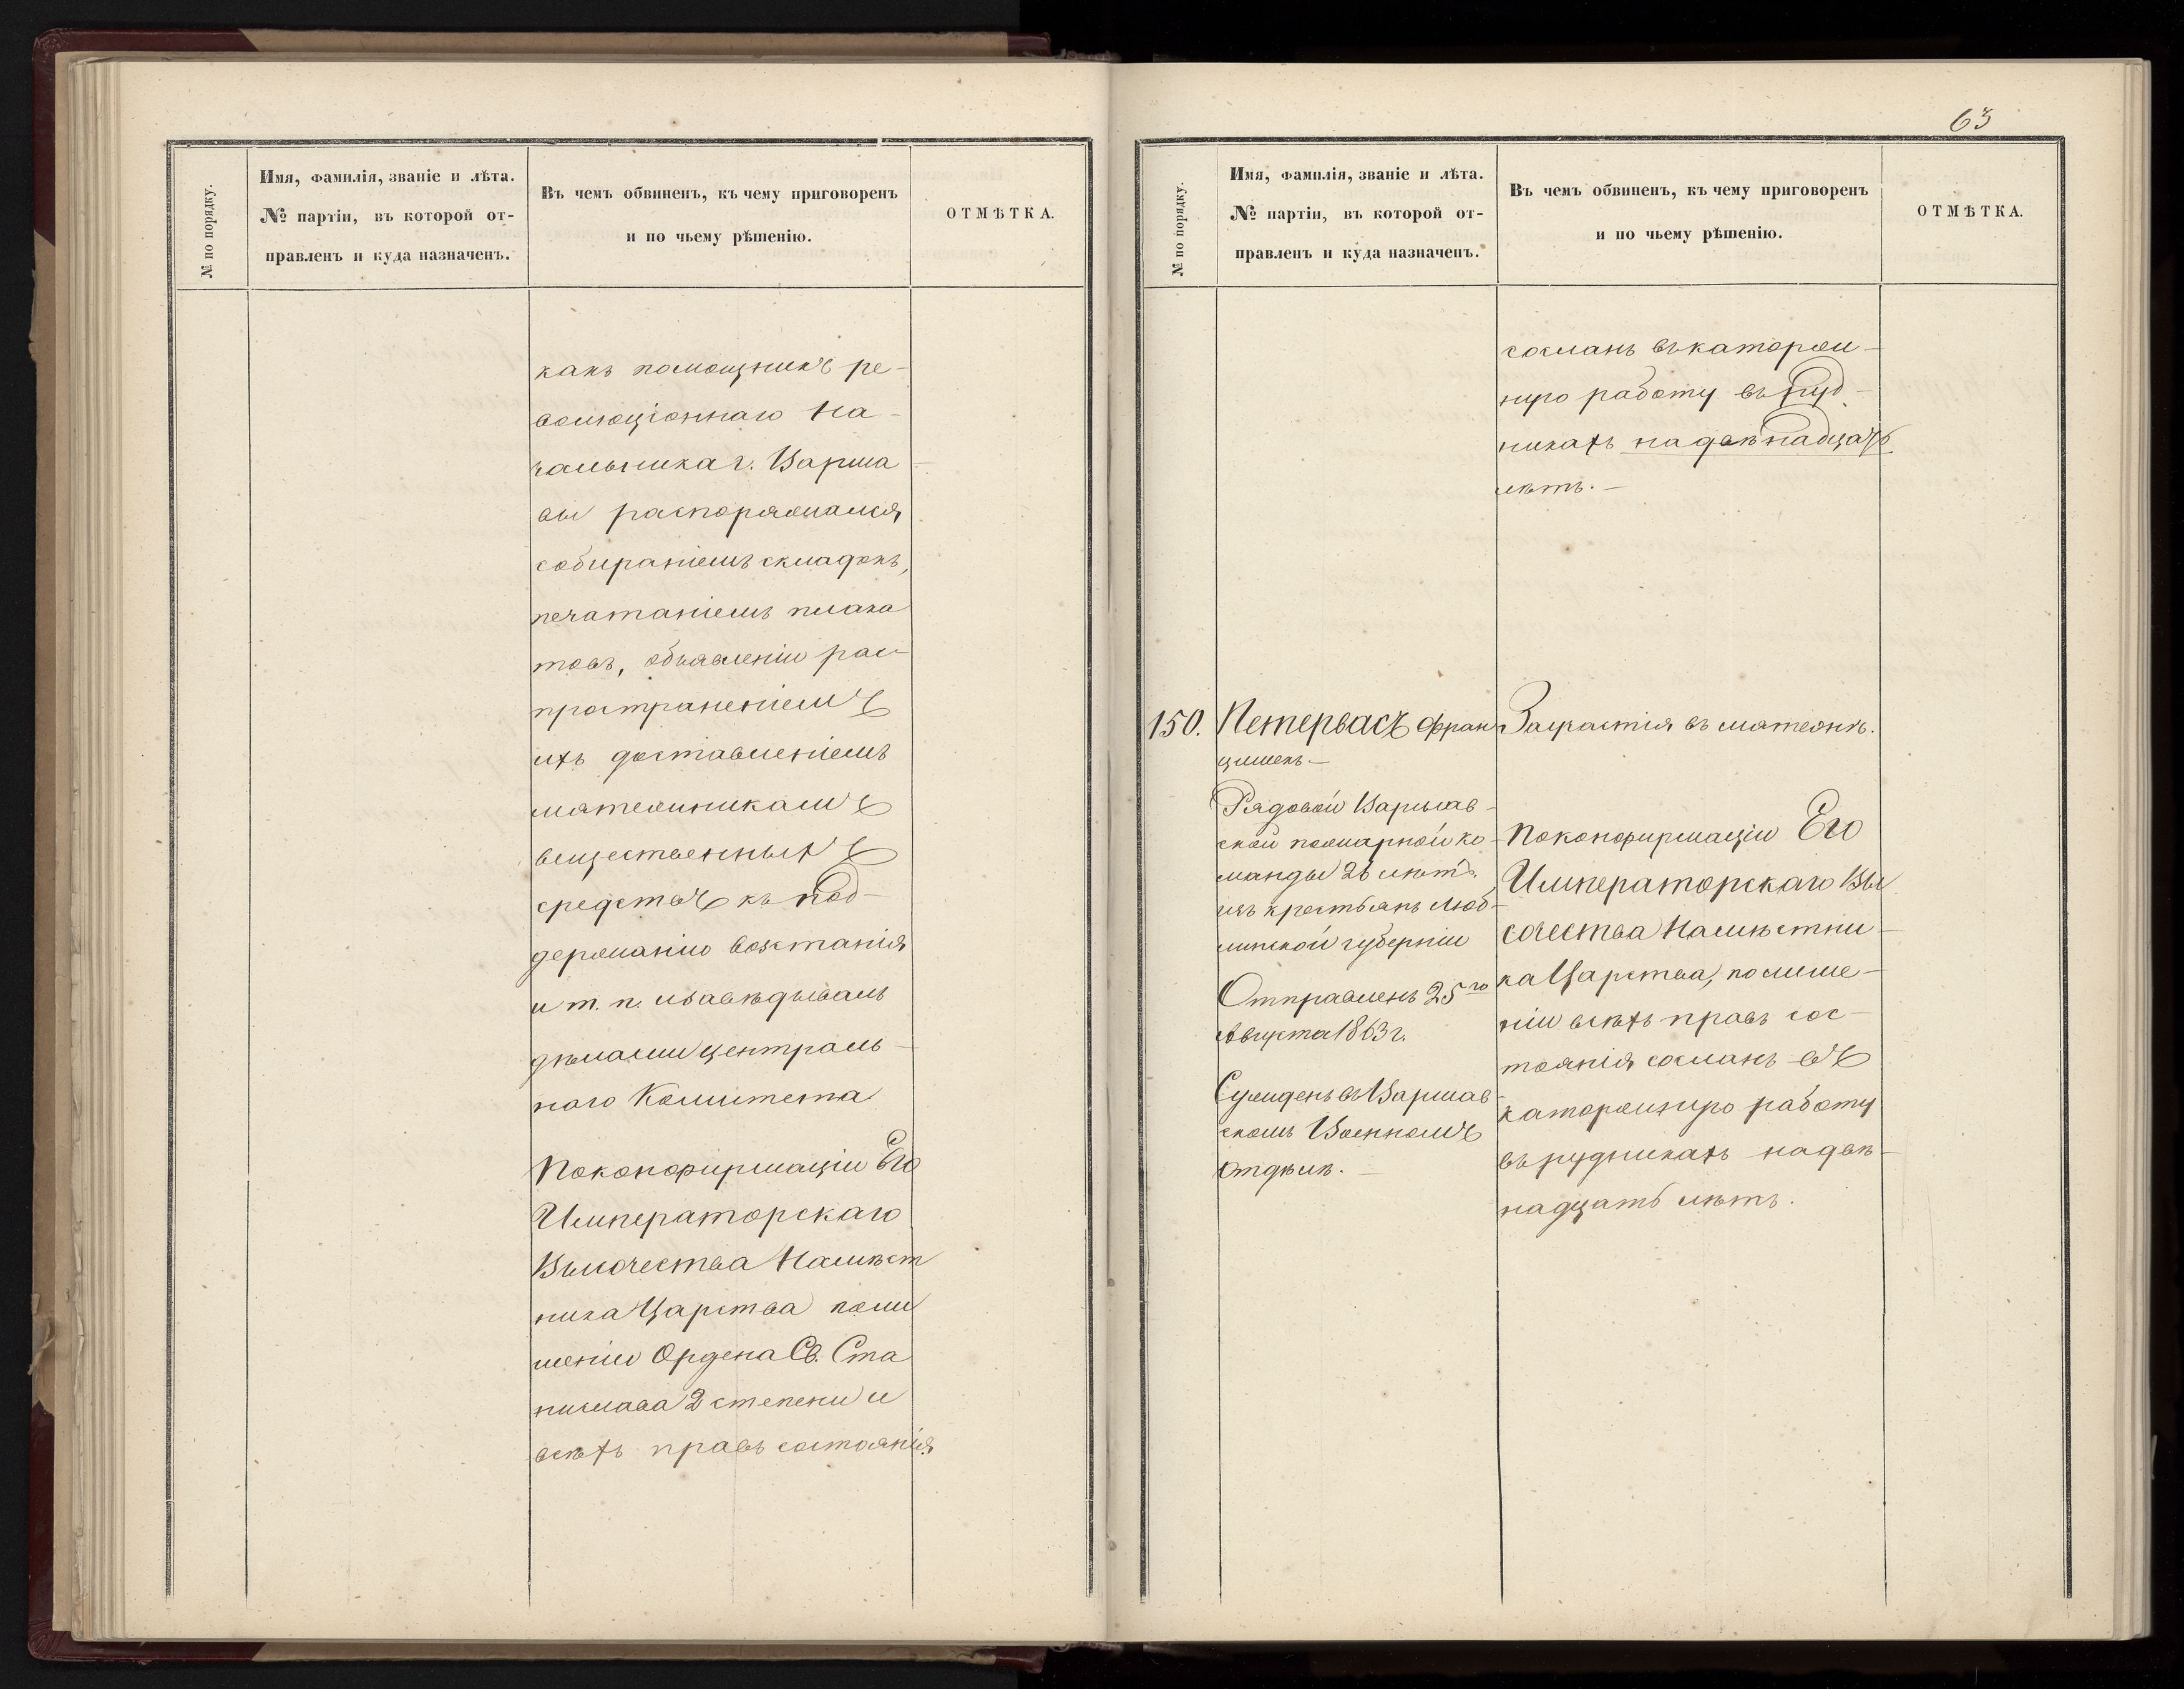 № по порядку.
Имя, фамилія, званіе и лѣта.
№ партіи, въ которой от-
правленъ и куда назначенъ.
Въ чемъ обвиненъ, къ чему приговоренъ
и по чьему рѣшенію.
ОТМѢТКА.
какъ помощникъ ре-
волюціоннаго На-
чальника г. Варша
вы распоряжался
собираніемъ складокъ,
печатаніемъ плака
товъ, объявленіи рас-
пространеніемъ
ихъ доставленіемъ
мятежникамъ
вещественныхъ
средствъ къ под-
держанію возстанія
и т. п. и завѣдывалъ
дѣлами централь-
наго Комитета
По конфирмаціи Его
Императорскаго
Высочества Намѣст
ника Царства по ли
шеніи Ордена Св. Ста
нислава 2 степени и
всѣхъ правъ состоянія
63
№ по порядку.
Имя, фамилія, званіе и лѣта.
№ партіи, въ которой от-
правленъ и куда назначенъ.
Въ чемъ обвиненъ, къ чему приговоренъ
и по чьему рѣшенію.
ОТМѢТКА.
сосланъ въ каторж-
ную работу въ руд-
никахъ на двѣнадцать
лѣтъ.—
150.
Петервасъ Фран
цишекъ.—
Рядовой Варшав-
ской пожарной ко-
манды 26 лѣтъ.
изъ крестьянъ Люб-
линской губерніи
Отправленъ 25го
Августа 1863 г.
Сужденъ въ Варшав-
скомъ Военномъ
Отдѣлѣ.—
За участія въ мятежѣ.
По конфирмаціи Его
Императорскаго Вы
сочества Намѣстни-
ка Царства, по лише-
ніи всѣхъ правъ сос-
тоянія сосланъ въ
каторжную работу
въ рудникахъ на двѣ-
надцать лѣтъ.